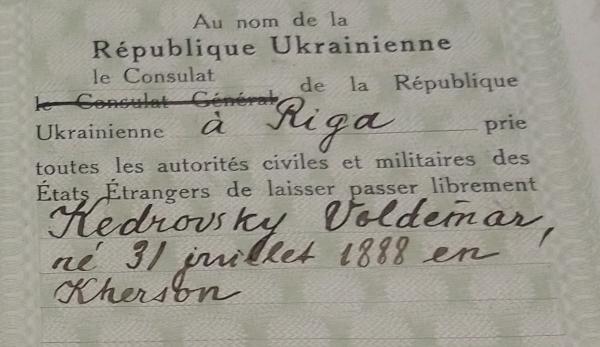 Au nom de la
République Ukrainienne
le Consulat
le Consulat Général de la République
Ukrainienne à Riga prie
toutes les autorités civiles et militaires des
États Étrangers de laisser passer librement
Kedrovsky Voldemar,
né 31 juillet 1888 en
Kherson